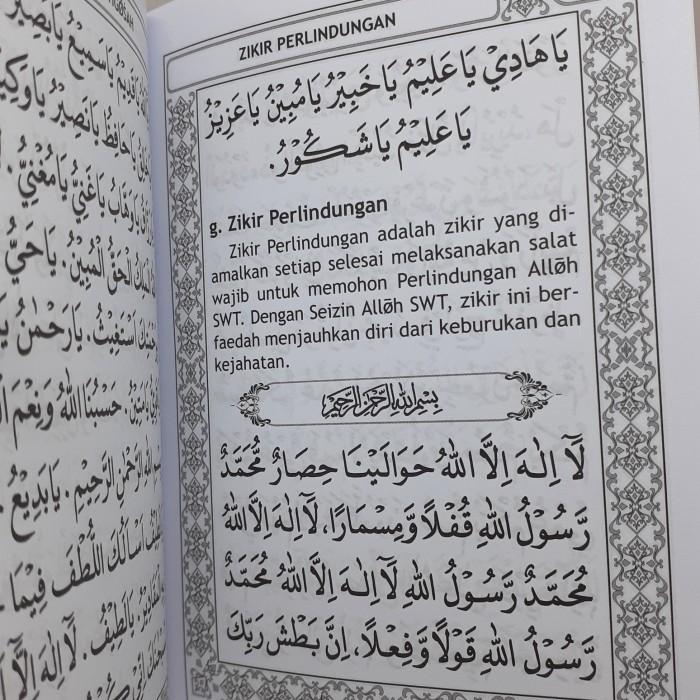 ZIKIR PERLINDUNGAN
يَا هَادِيْ يَا عَلِيْمُ يَا خَبِيْرُ يَا مُبِيْنُ يَا عَزِيْزُ
يَا عَلِيْمُ يَا شَكُوْرُ.
g. Zikir Perlindungan
Zikir Perlindungan adalah zikir yang di-
amalkan setiap selesai melaksanakan salat
wajib untuk memohon Perlindungan Allōh
SWT. Dengan Seizin Allōh SWT, zikir ini ber-
faedah menjauhkan diri dari keburukan dan
kejahatan.
بِسْمِ اللهِ الرَّحْمٰنِ الرَّحِيْمِ
لَآ اِلٰهَ اِلَّا اللهُ حَوَالَيْنَا حِصَارٌ مُّحَمَّدٌ
رَّسُوْلُ اللهِ قُفْلًا وَّمِسْمَارًا، لَآ اِلٰهَ اِلَّا اللهُ
مُحَمَّدٌ رَّسُوْلُ اللهِ لَآ اِلٰهَ اِلَّا اللهُ مُحَمَّدٌ
رَّسُوْلُ اللهِ قَوْلًا وَّفِعْلًا، اِنَّ بَطْشَ رَبِّكَ
يَا قَدِيْمُ يَا سَمِيْعُ يَا بَصِيْرُ
يَا حَافِظُ يَا نَصِيْرُ يَا وَكِيْلُ
يَا وَهَّابُ يَا غَنِيُّ يَا مُغْنِيُّ.
الْمَلِكُ الْحَقُّ الْمُبِيْنُ. يَا حَيُّ
اَسْتَغِيْثُ. يَا رَحْمٰنُ
حَسْبُنَا اللهُ وَنِعْمَ
الرَّحْمٰنِ الرَّحِيْمِ. يَا بَدِيْعُ
اَسْأَلُكَ اللُّطْفَ فِيْمَا
يَا لَطِيْفُ. لَآ اِلٰهَ اِلَّا